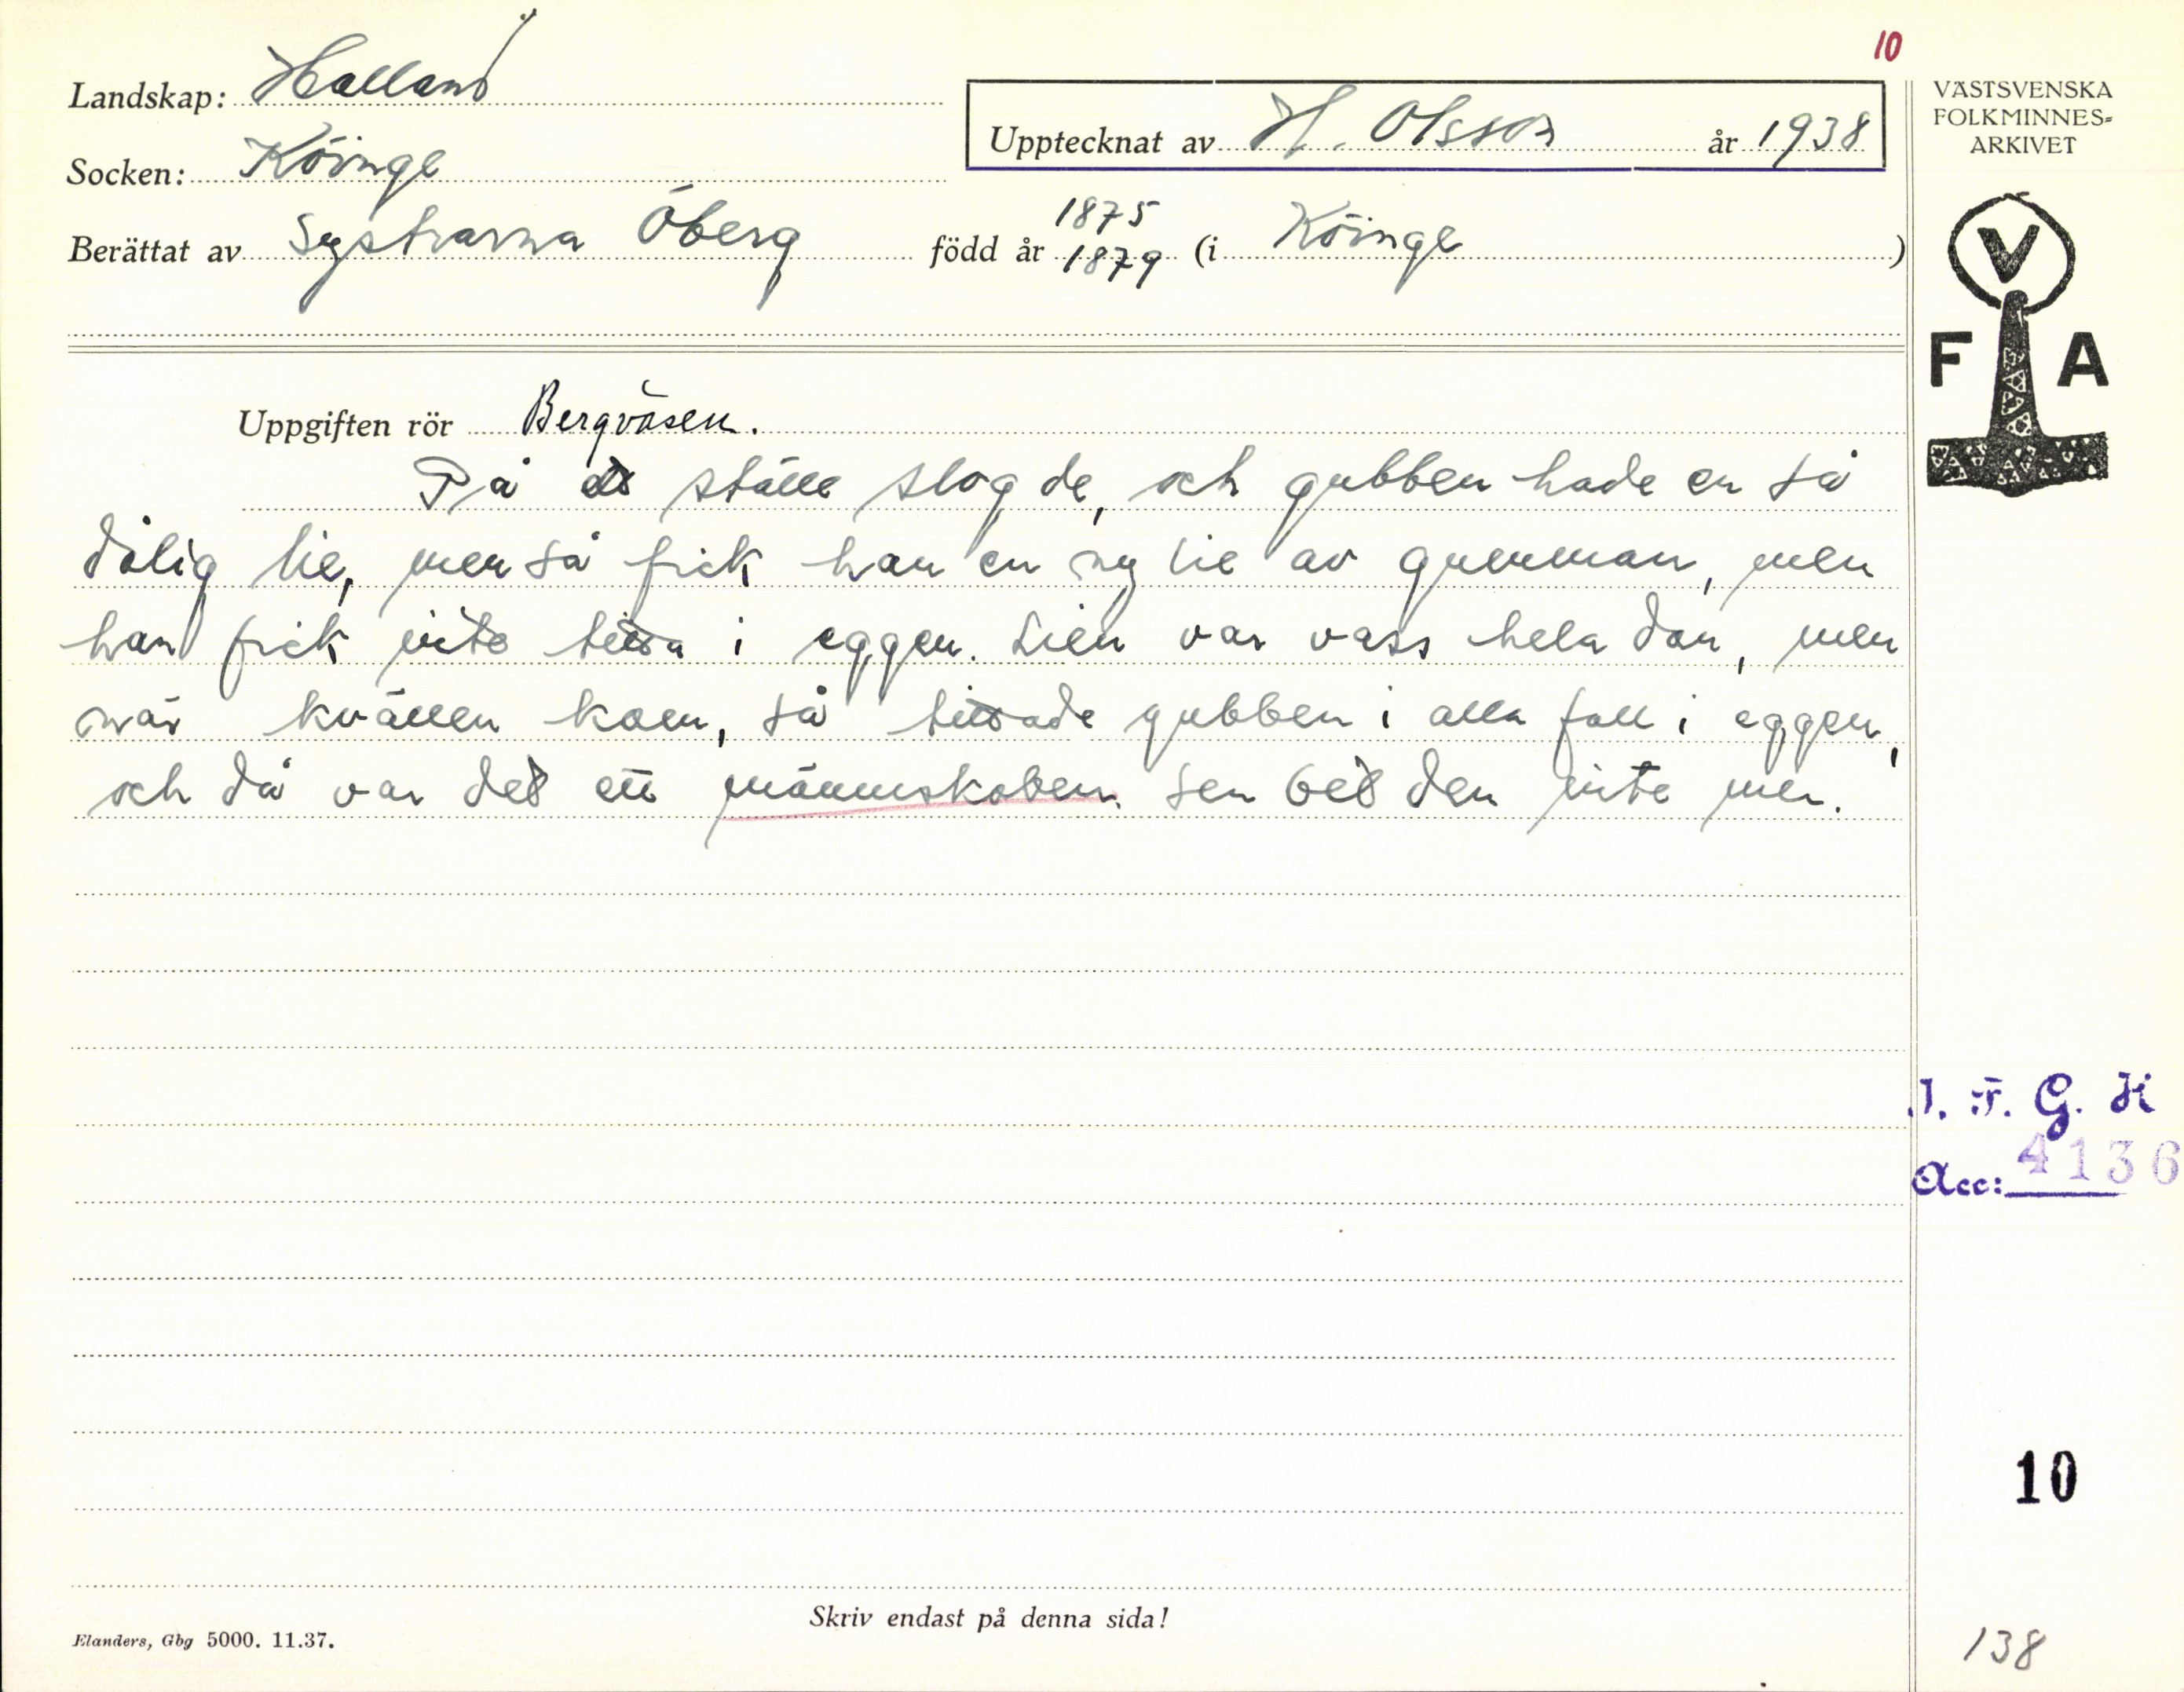 10
Landskap: Halland
Socken: Köinge
Berättat av Systrarna Öberg
Upptecknat av H. Olsson år 1938
född år 1875 1879 (i Köinge)
VÄSTSVENSKA
FOLKMINNES=
ARKIVET
V
F A
Uppgiften rör Bergväsen.
På ett ställe slog de, och gubben hade en så
dålig lie, men så fick han en ny lie av gumman, men
han fick inte titta i eggen. Lien var vass hela dan, men
när kvällen kom, så tittade gubben i alla fall i eggen,
och då var det ett männskoben. Sen bet den inte mer.
I. F. G. H
Acc: 4136
10
Skriv endast på denna sida!
Elanders, Gbg 5000. 11.37.
138